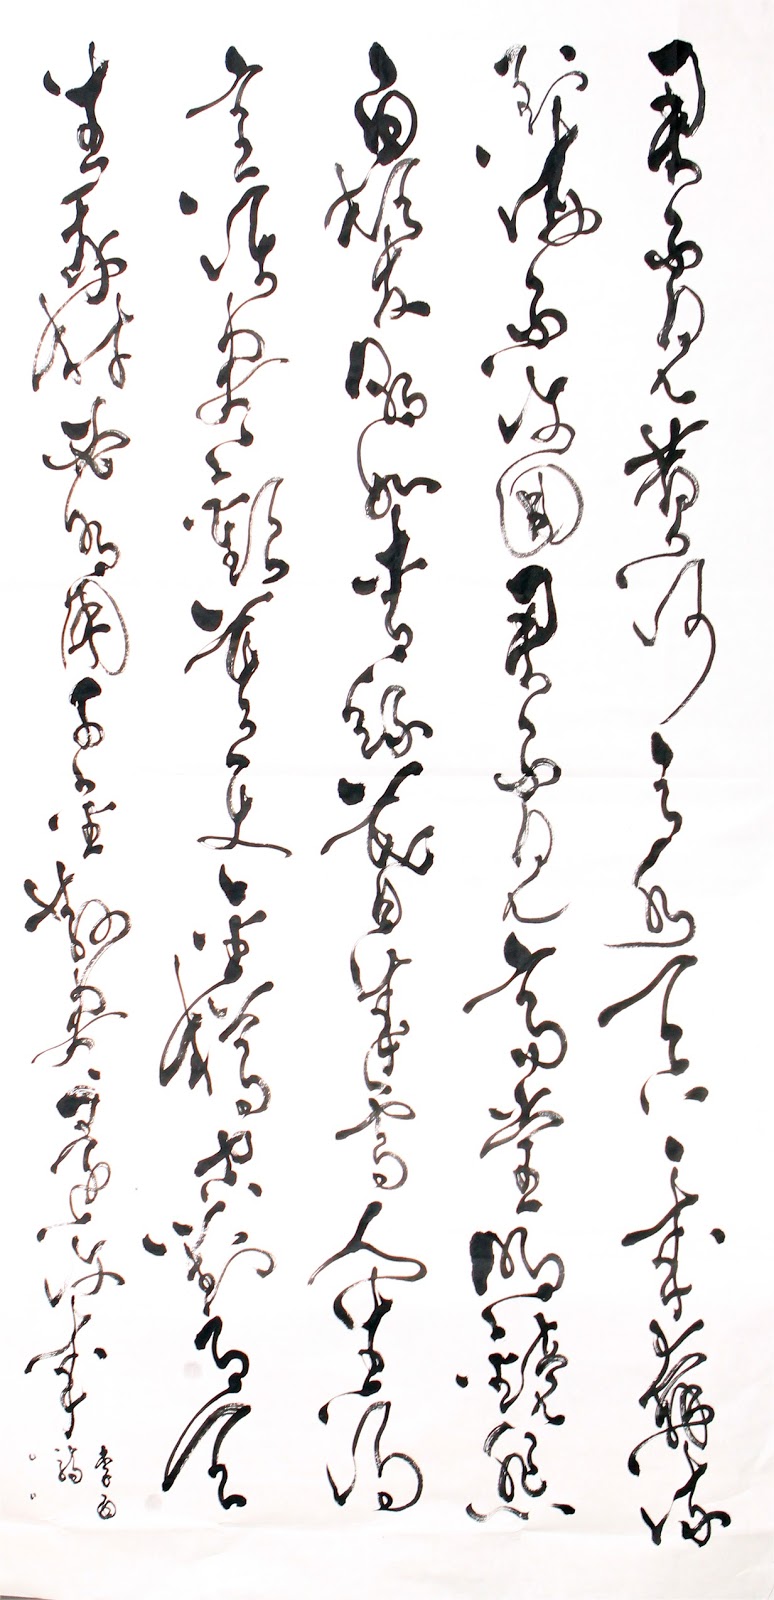 君不見黃河之水天上來奔流
到海不復回君不見高堂明鏡悲
白髮朝如青絲暮成雪人生得
意須盡歡莫使金樽空對月天
生我材必有用千金散盡還復來
李白
詩